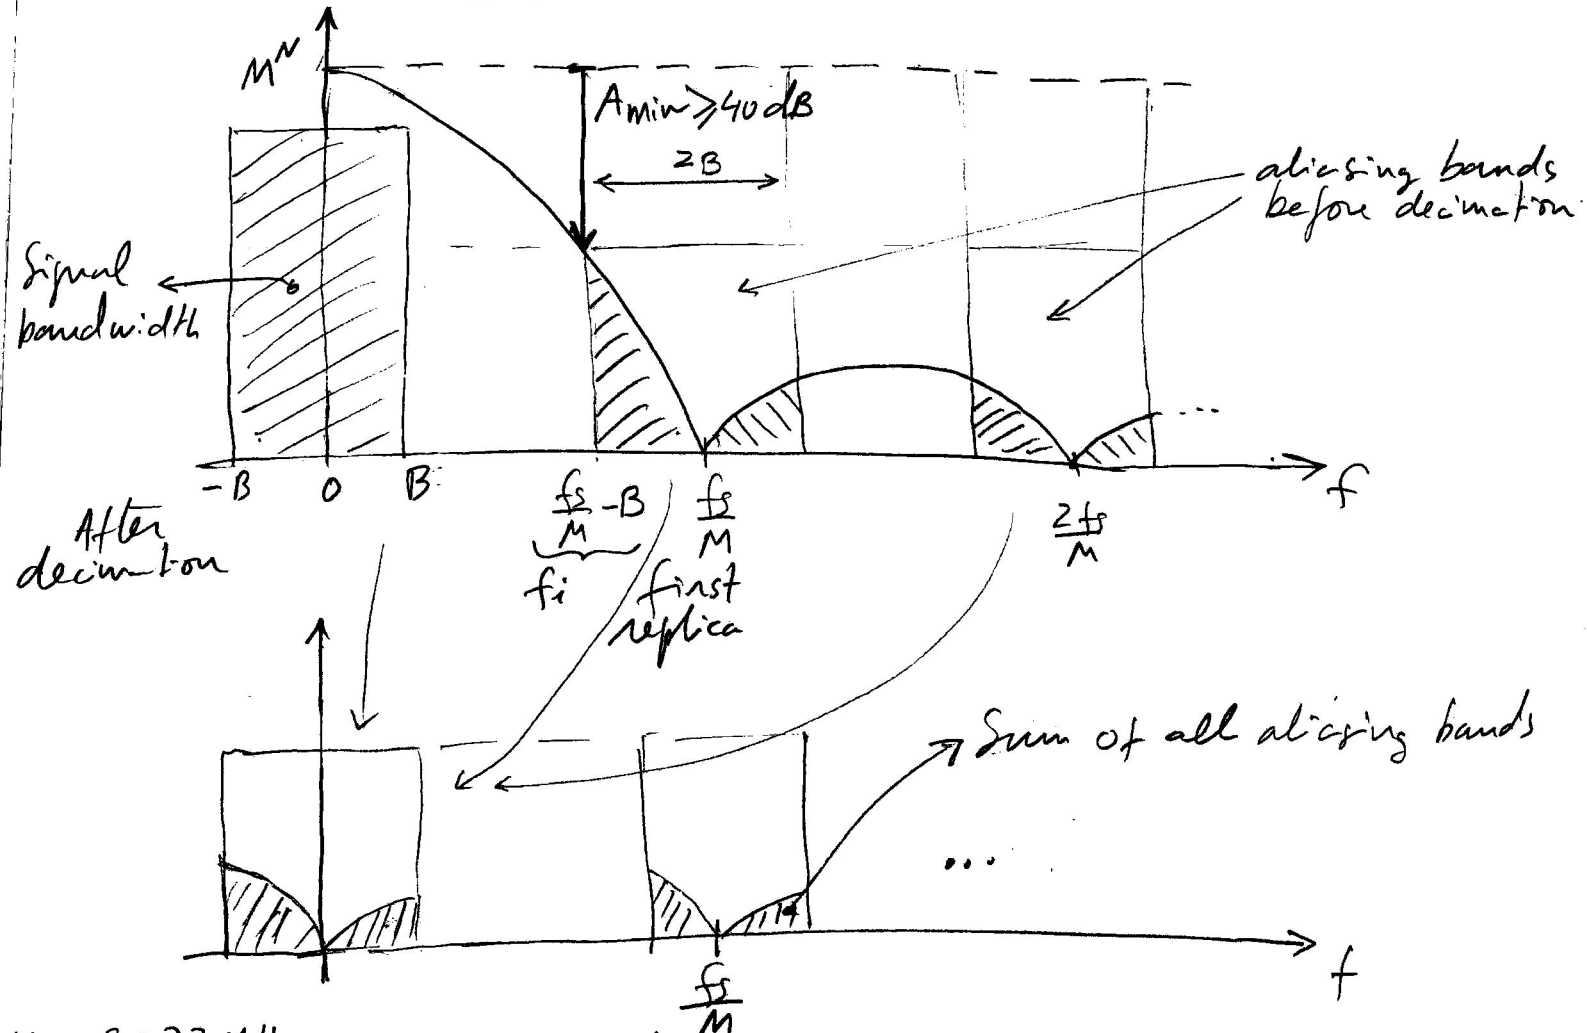 M^N
Amin ≥ 40 dB
2B
aliasing bands
before decimation
Signal
bandwidth
-B 0 B fs/M -B fs/M 2fs/M f
fi
first
replica
After
decimation
Sum of all aliasing bands
...
...
fs/M
f